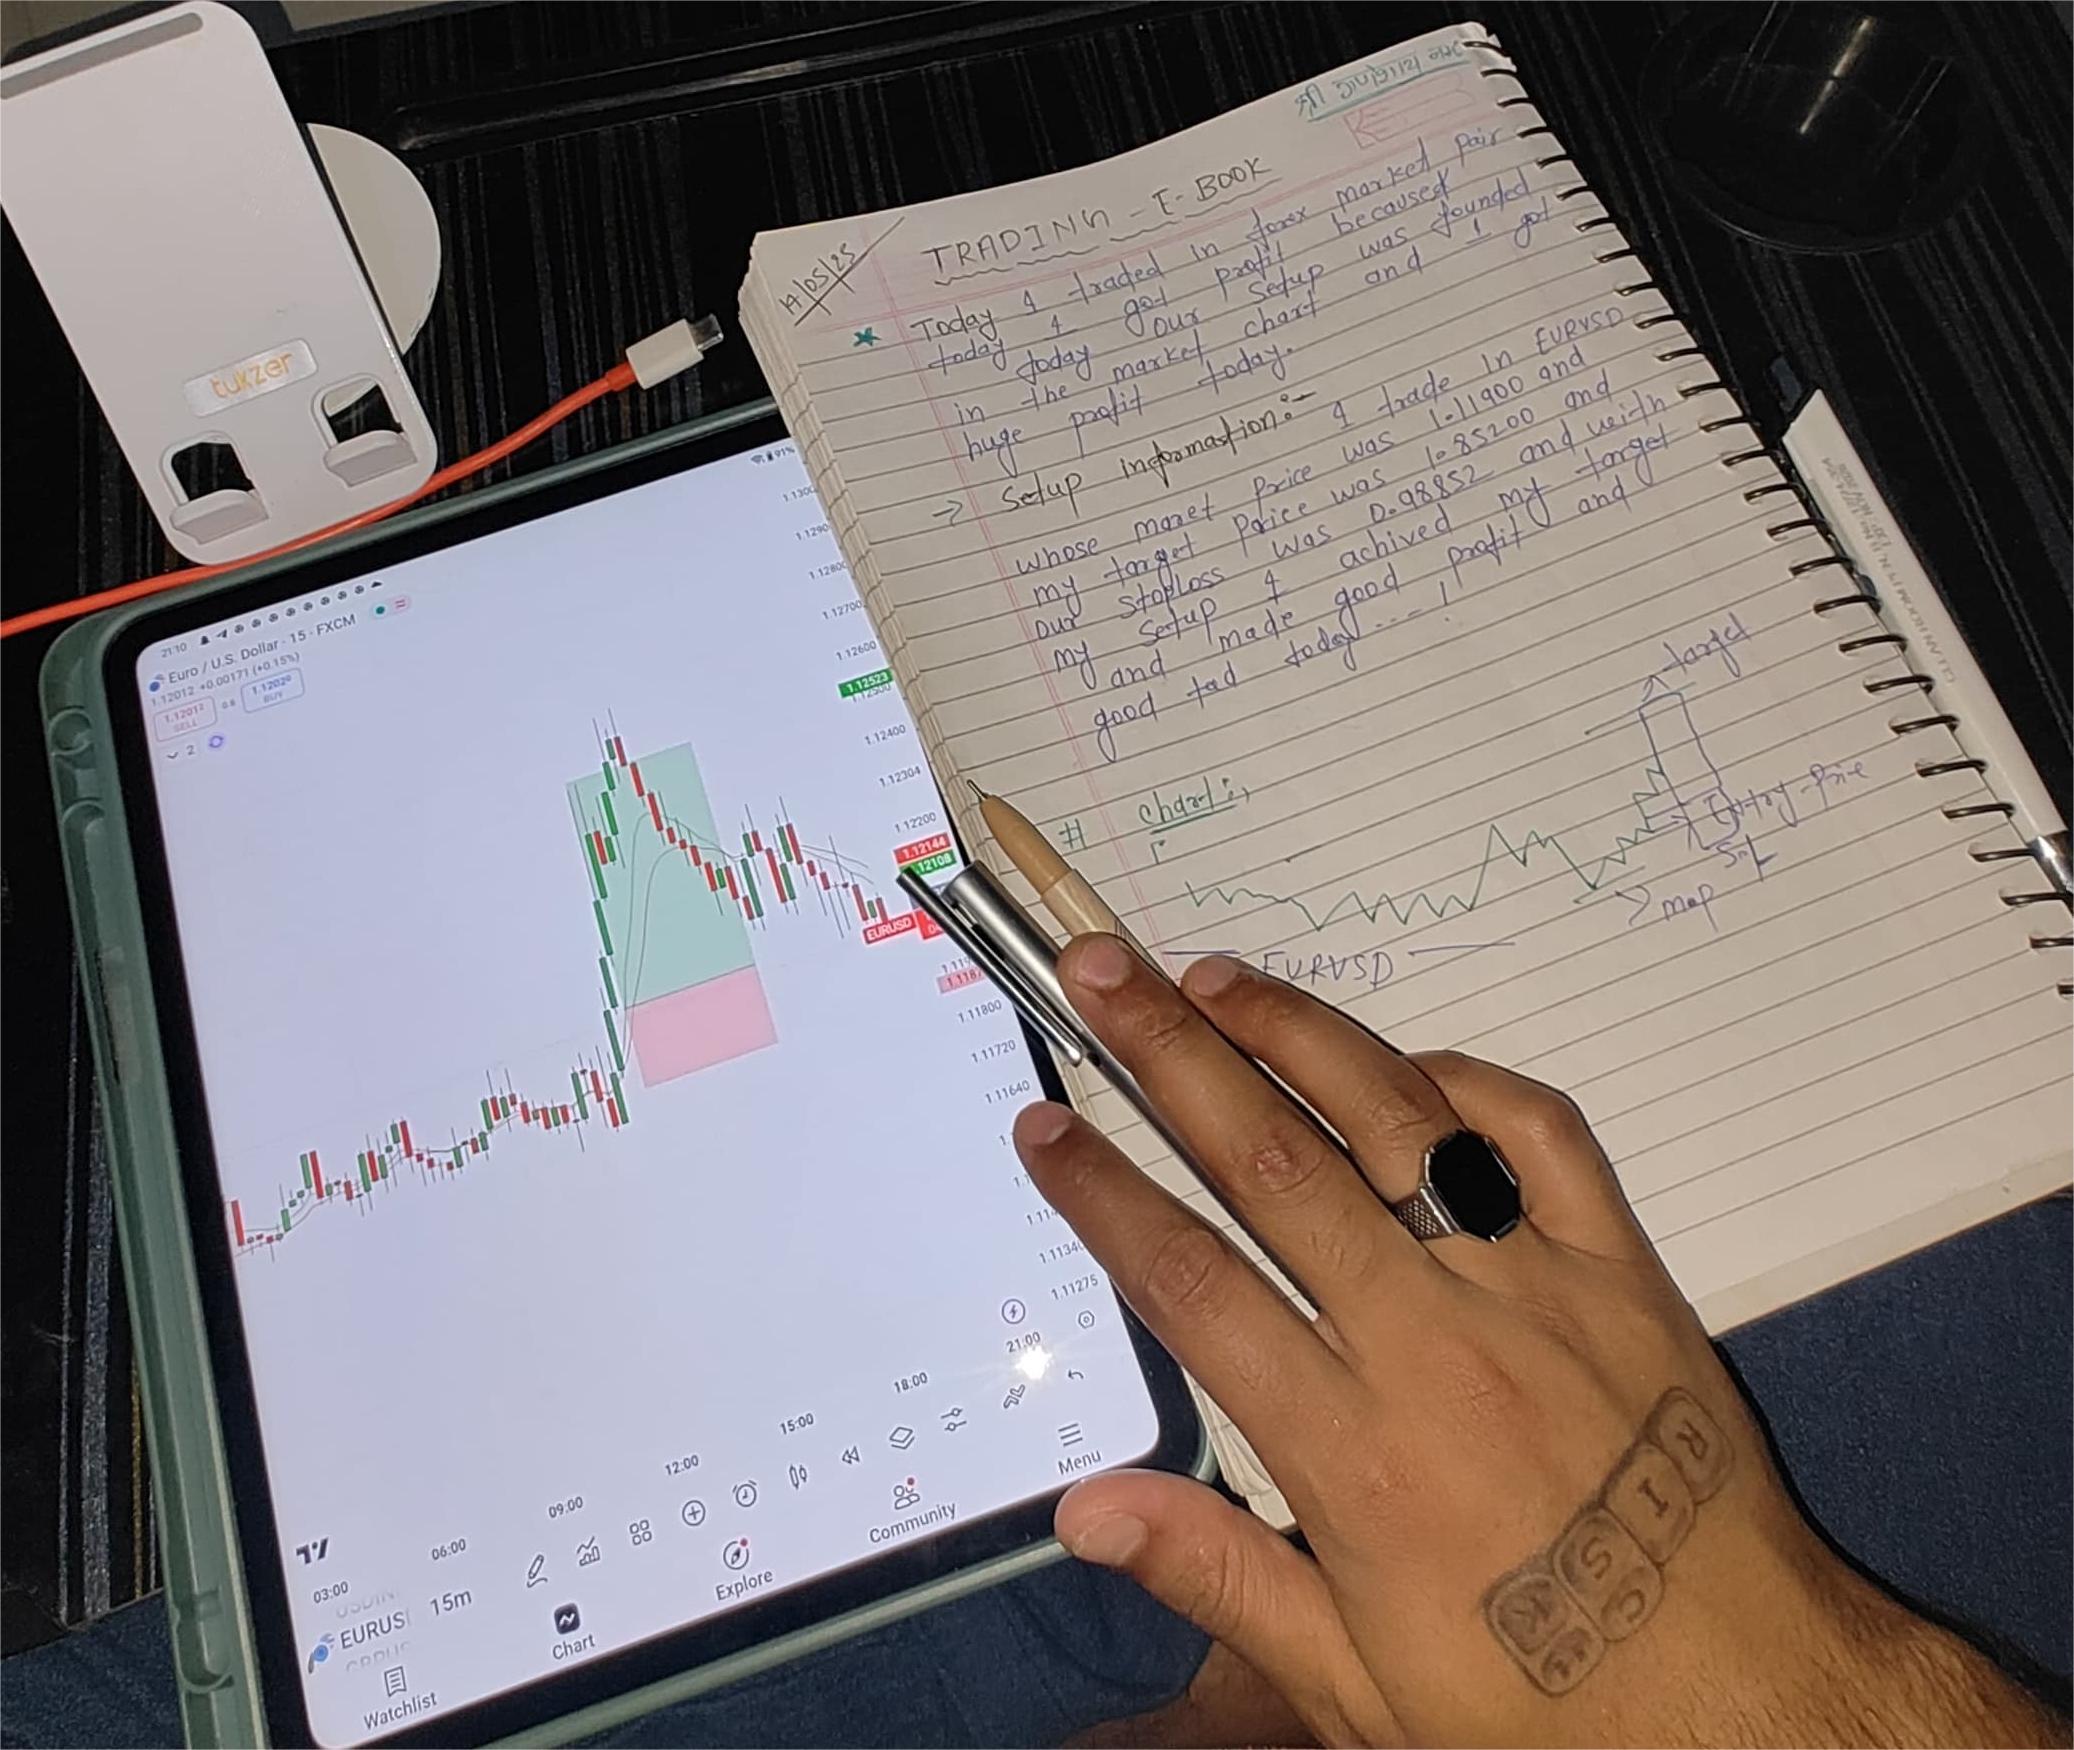 tukzer
श्री गणेशाय नमः
14/05/25
TRADING - E-BOOK
Today I traded in forex market pair
today I got profit becaused
today our setup was founded
in the market chart and I got
huge profit today.
→ Setup information:-
I trade in EURUSD
whose maret price was 1.11900 and
my target price was 1.85200 and
our stoploss was 0.98852 and with
my setup I achived my target
and made good profit and
good tad today ----!
# chart:,
target
Entry-Prie
S.L
map
EURUSD
21:10
91%
Euro / U.S. Dollar · 15 · FXCM
1.12012 +0.00171 (+0.15%)
1.12012 SELL
0.8
1.12020 BUY
2
1.1300
1.1290
1.12800
1.12700
1.12600
1.12523
1.12500
1.12400
1.12304
1.12200
1.12144
1.12108
EURUSD
1.1187
1.11800
1.11720
1.11640
1.11340
1.11275
03:00 06:00 09:00 12:00 15:00 18:00 21:00
USDIN
EURUS
15m
GBPUS
Watchlist Chart Explore Community Menu
RISK